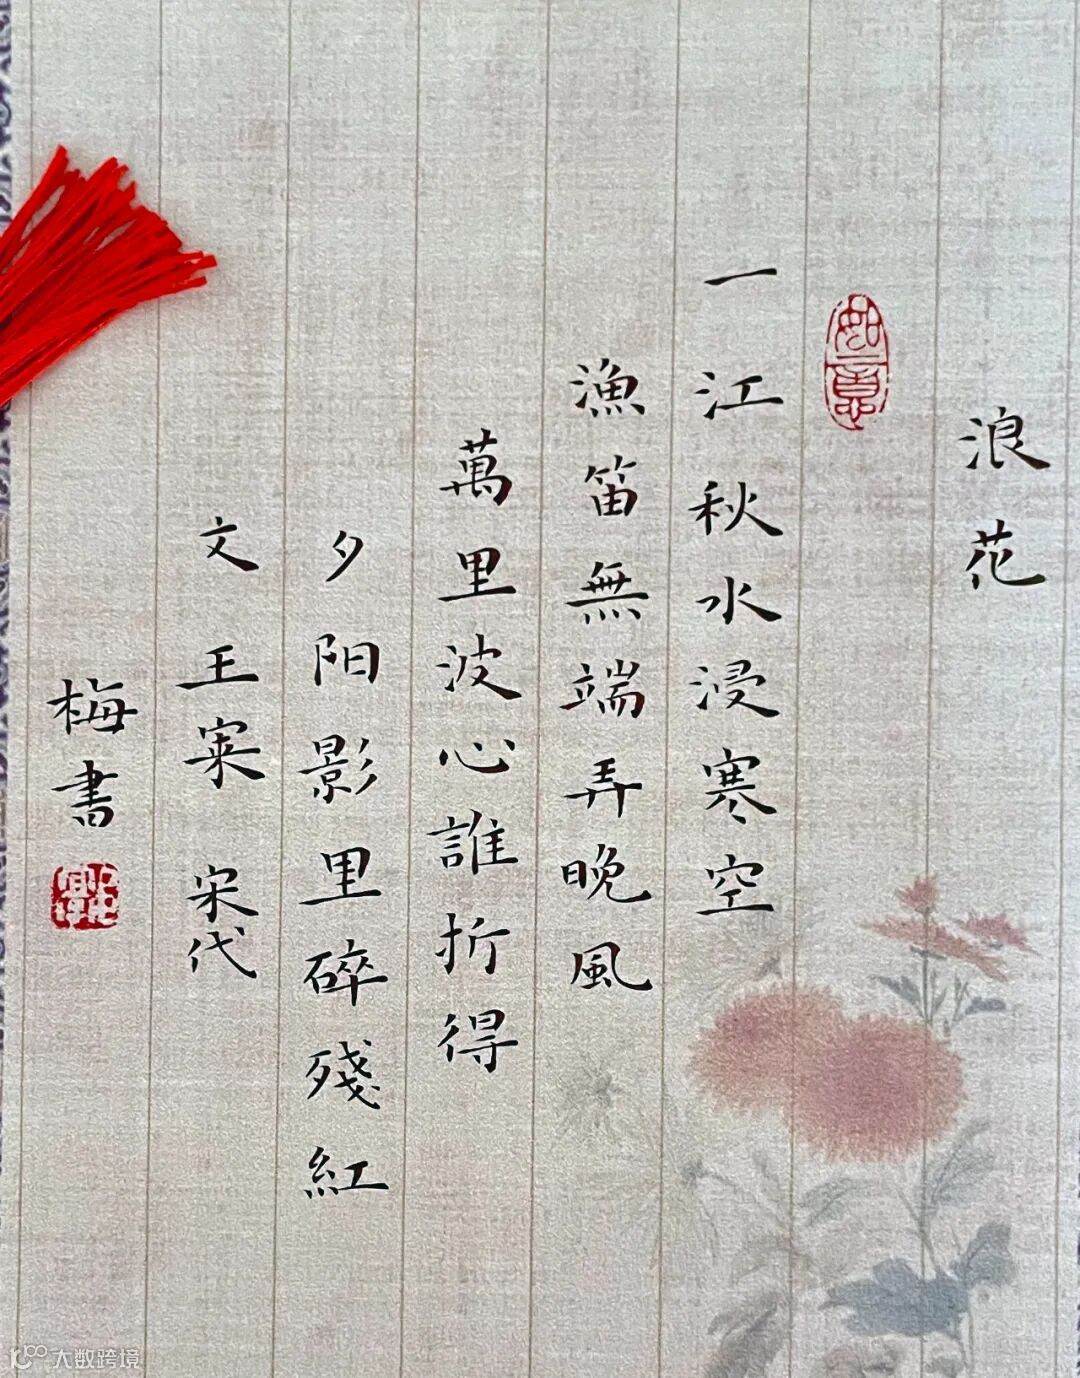 浪花
如意
一江秋水浸寒空
漁笛無端弄晚風
萬里波心誰折得
夕阳影里碎殘紅
文 王寀 宋代
梅書
大数跨境